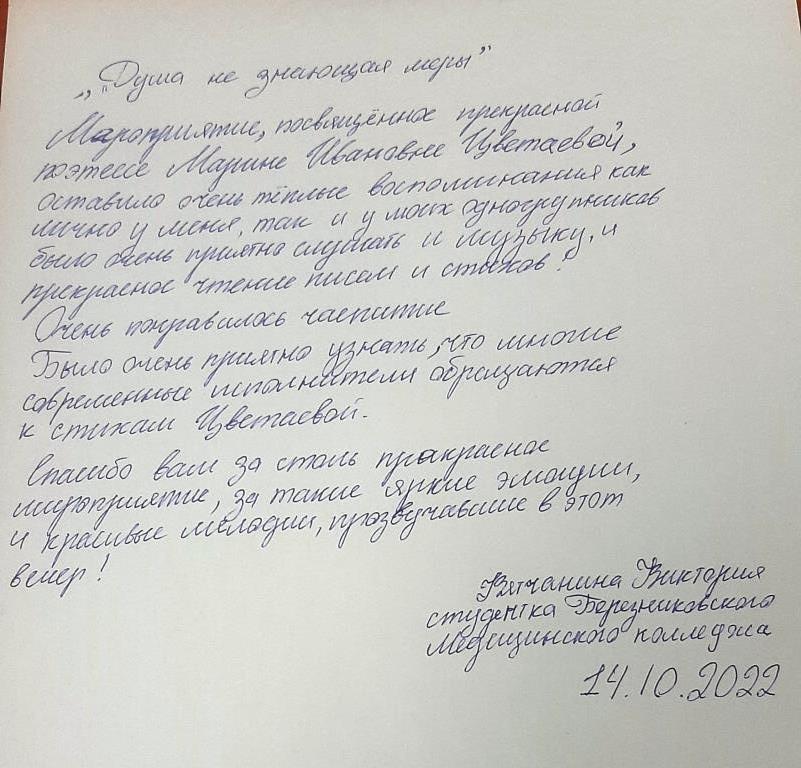 „"Душа не знающая меры"
Мароприятие, посвящённое прекрасной
поэтессе Марине Ивановне Цветаевой,
оставило очень тёплые воспоминания как
лично у меня, так и у моих одногрупников
было очень приятно слушать и музыку, и
прекрасное чтение писем и стихов!
Очень понравилось чаепитие
Было очень приятно узнать, что многие
современные исполнители обращаются
к стихам Цветаевой.
Спасибо вам за столь пракрасное
мироприятие, за такие яркие эмоции,
и красивые мелодии, прозвучавшие в этот
вечер!
Вятчанина Виктория
студентка Березниковского
Медицинского колледжа
14.10.2022